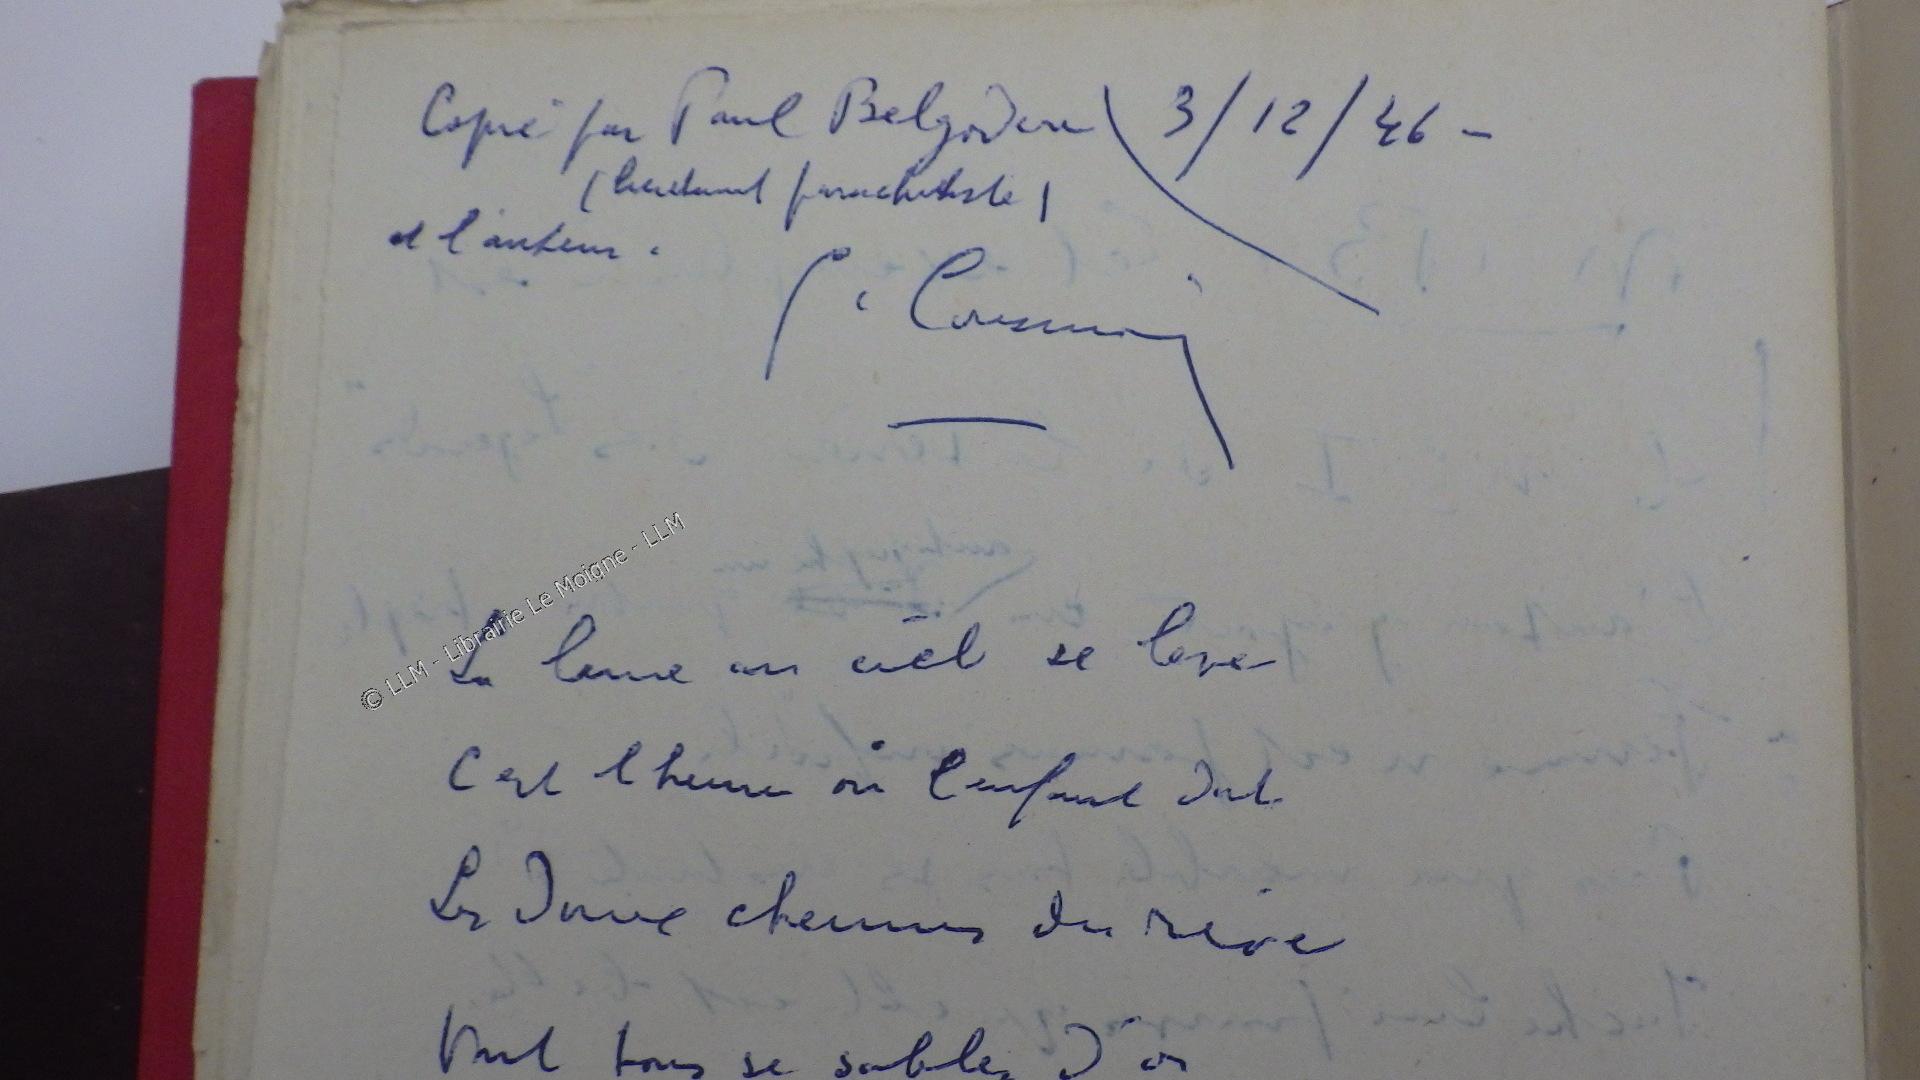 Copié par Paul Belgodere 3/12/46 -
(lieutenant parachutiste)
et l'auteur.
© LLM - Librairie Le Moigne - LLM
La lune au ciel se lève
C'est l'heure où l'enfant dort
Les doux chemins du rêve
Vont tous se sabler d'or